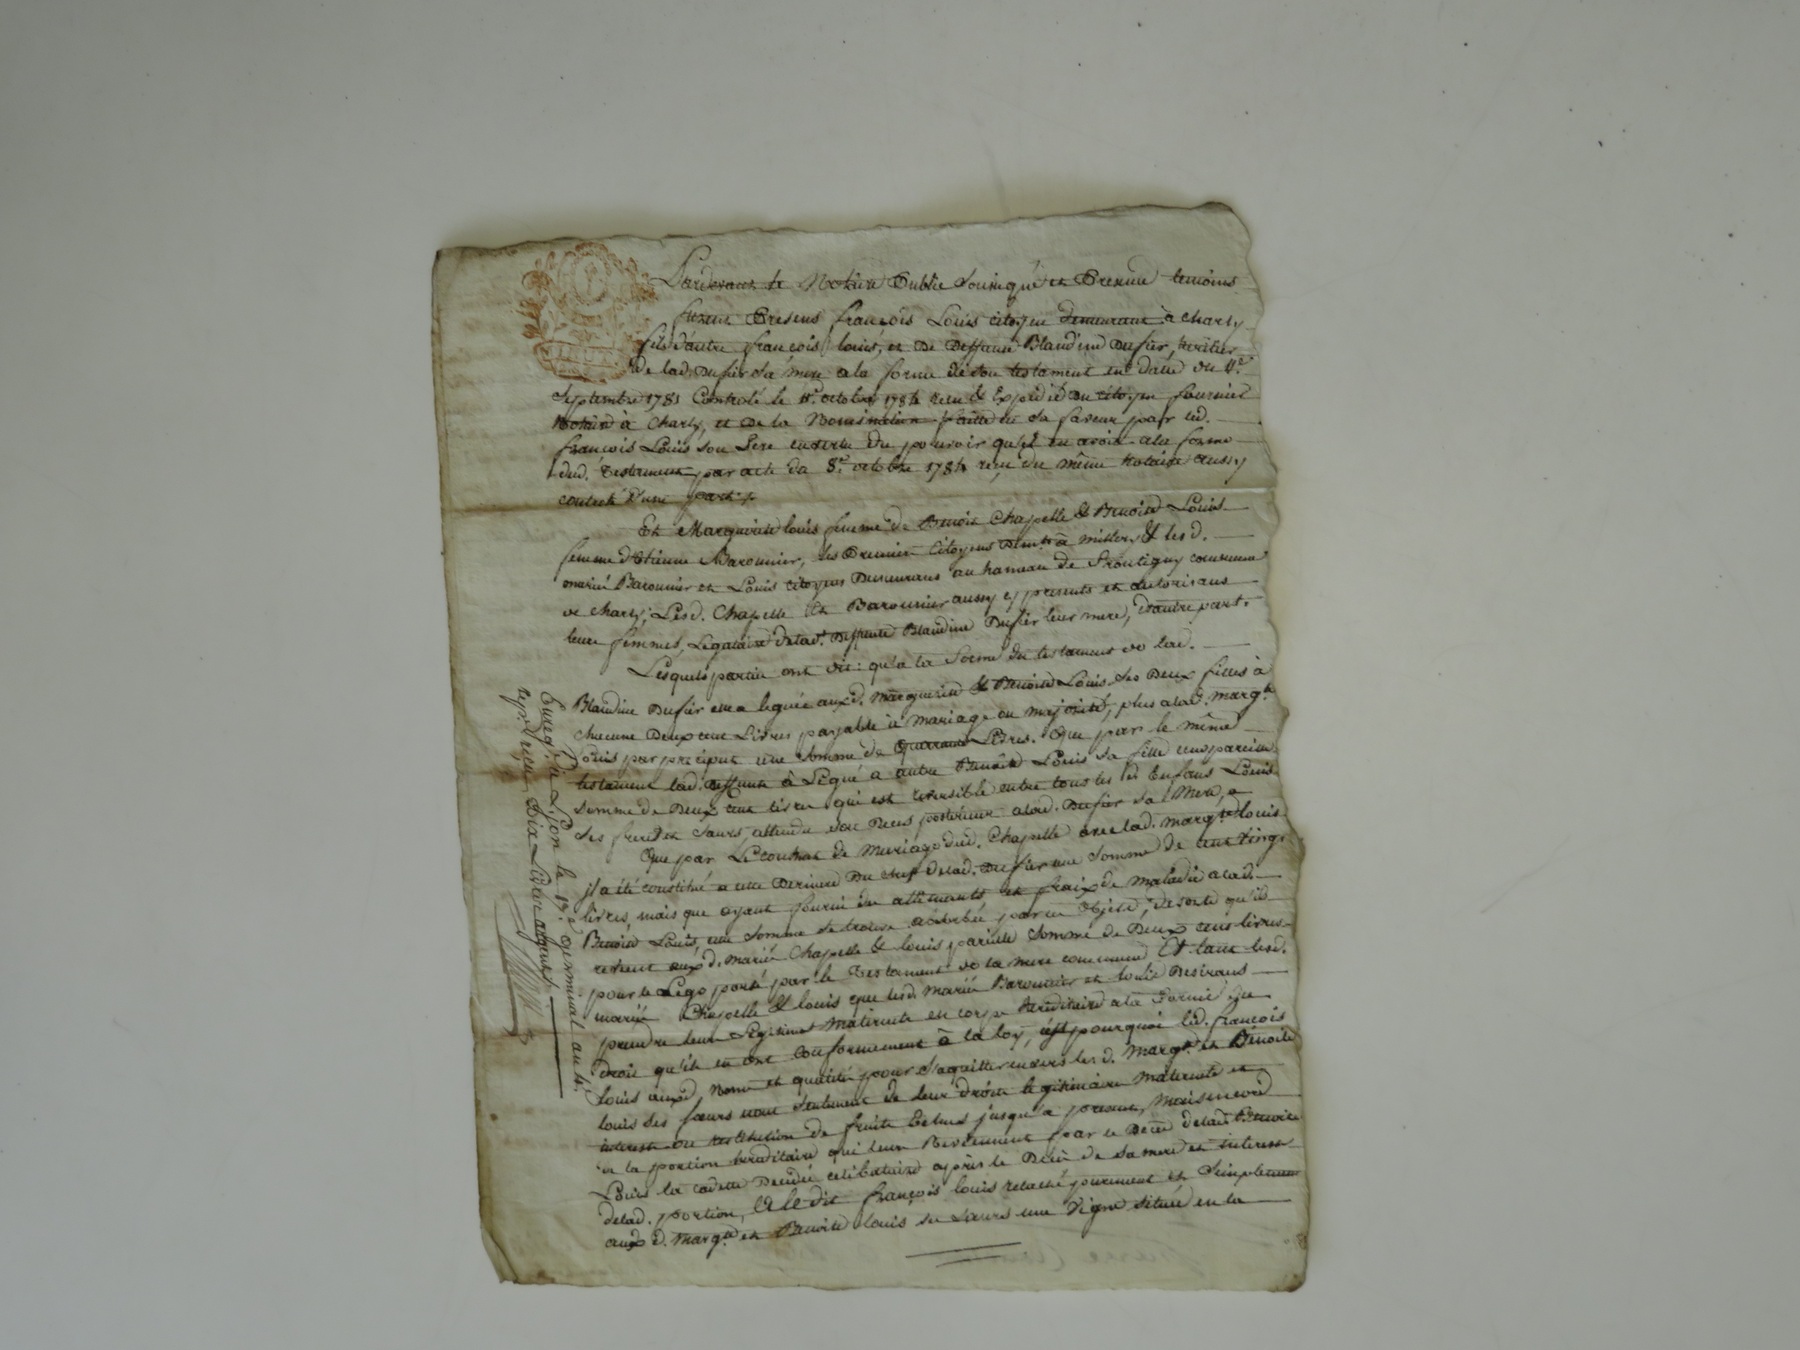 Pardevant le Notaire Public Soussigné et Presens temoins
furent Presens françois Louis citoyen demeurant à charly
fils d'autre françois louis, et de deffunte Blandine Dufier, heritier
de lad. Dufier sa mere a la forme de son testament en datte du 4.e
Septembre 1781 Controlé le 11.e octobre 1784 recu & Expedié du citoyen fournier
Notaire à Charly, et de la Nomination faitte en sa faveur par led.
françois Louis son Pere en vertu du pouvoir qu'il en avoit a la forme
dud. Testament par acte du 8.e octobre 1784 reçu du même Notaire aussy
controlé d'une part;
Et Marguerite louis femme de Benoit Chapelle & Benoite Louis
femme d'Etienne Baronnier, les Premiers Citoyens Dem.ts à Millery & les d.
mariés Baronnier et Louis citoyens Demeurans au hameau de Frontigny commune
de charly, Lesd. Chapelle et Baronnier aussy cy presents et autorisans
leurs femmes, Legataires de lad. Deffunte Blandine Dufier leur mere, d'autre part.
Lesquels parties ont dit: qu'a la forme du testament de lad.
Blandine Dufier elle a legué aux d. Marguerite & Benoite Louis ses Deux filles à
chacune Deux cent Livres payable à mariage ou majorité, plus a lad. Marg.te
Louis par préciput une somme de Quarante Livres. Que par le même
testament lad. deffunte à Légué a autre Benoite Louis sa fille une pareille
somme de Deux cent livres qui est reversible entre tous les d. Enfans Louis
ses freres et sœurs, attendu son Deces posterieur a lad. Dufier sa Mere,
Que par le contrat de Mariage dud. Chapelle avec lad. Marg.te Louis
il a été constitué a cette derniere du chef de lad. Dufier une somme de cent vingt
livres, mais que ayant fourni des alliments et fraix de maladie a lad.
Benoite Louis, cette somme se trouve absorbée par cet objet, de sorte qu'il
revient aux d. mariés Chapelle & louis pareille somme de Deux cent livres
pour le Legs porté par le Testament de la mere commune Et tant lesd.
mariés Chapelle & louis que lesd. mariés Baronnier et louis Desirans
prendre leur Legitime Maternelle en corps hereditaire a la forme du
droit qu'ils en ont conformement à la loy, c'est pourquoi led. françois
louis auxd. Noms et qualités pour s'aquitter envers les d. Marg.te et Benoite
louis ses sœurs non seulement de leur droits legitimaire maternels et
interests ou restitution de fruits Echus jusqu'a present, mais encore
de la portion hereditaire qui leur Reviennent par le Deces de lad. Benoite
Louis la cadette Decedée celibataire après le Deces de sa mere et interests
de lad. portion, Et le dit françois louis relache purement et simplement
aux d. Marg.te et Benoite louis ses sœurs une Vigne située en la
Enreg. à Lyon le 17. germinal an 4.
rep. reçu Dix Livres assignat